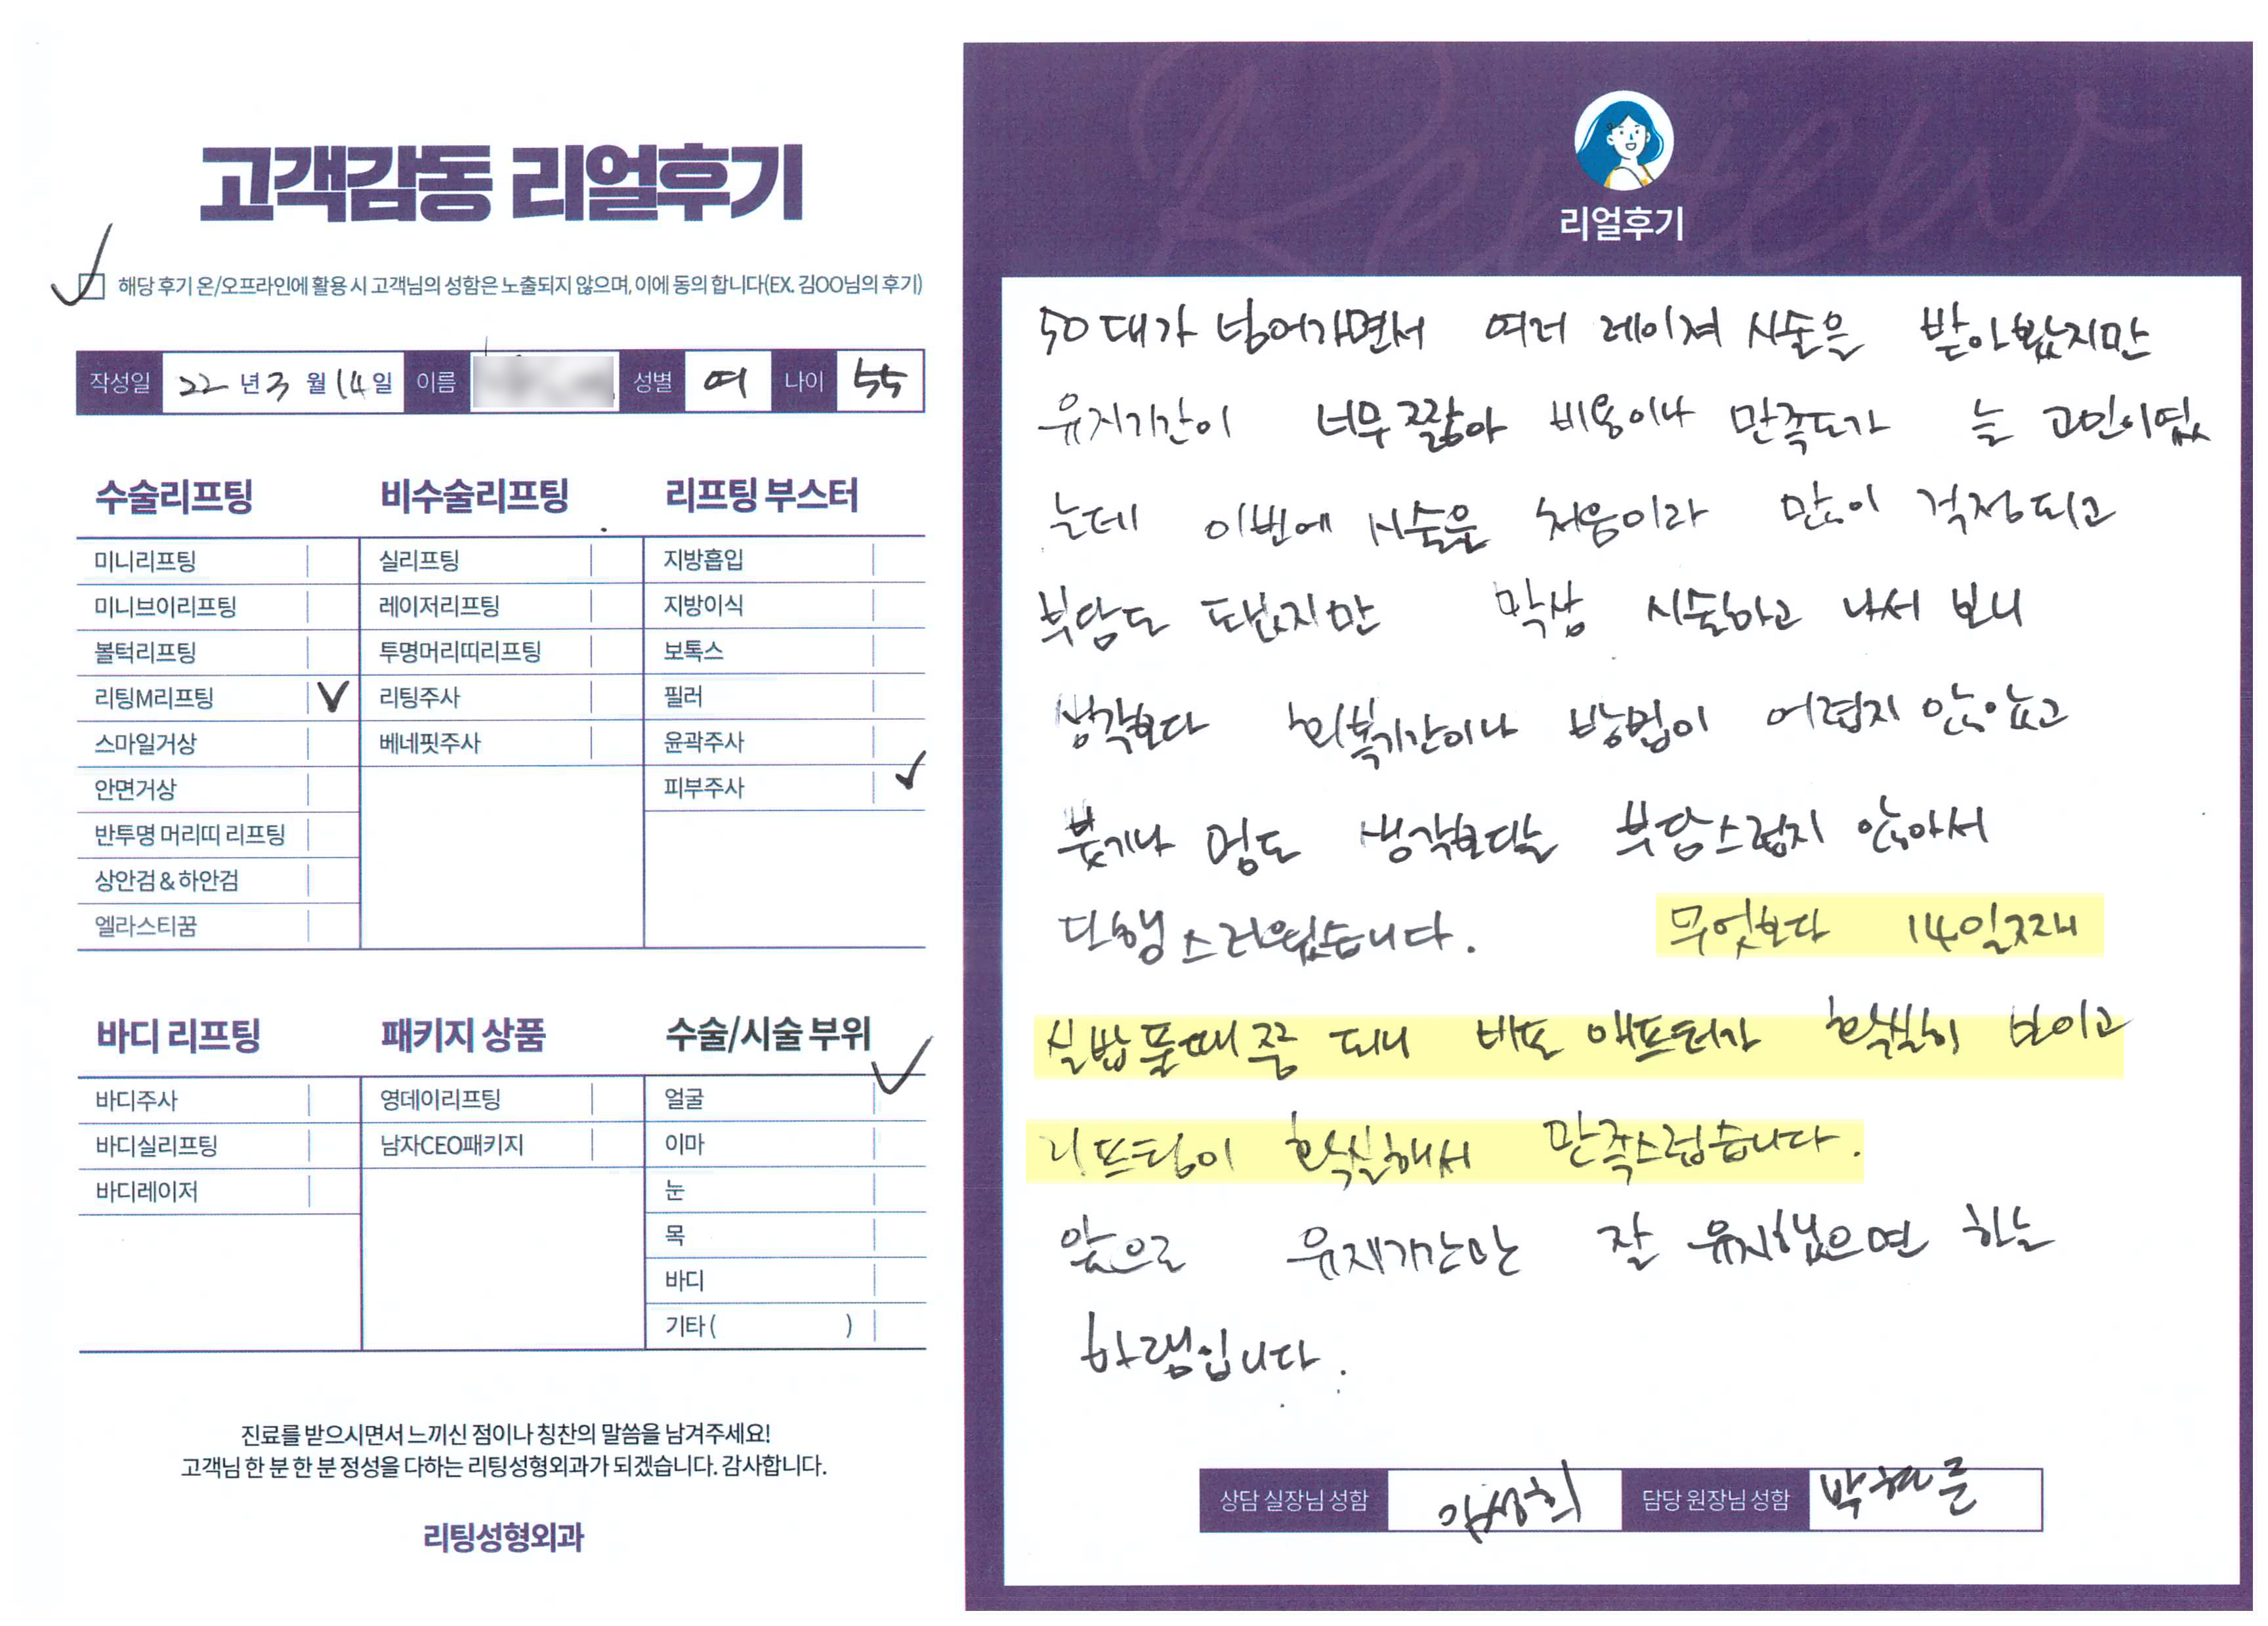 고객감동 리얼후기
해당 후기 온/오프라인에 활용 시 고객님의 성함은 노출되지 않으며, 이에 동의 합니다(EX. 김OO님의 후기)
작성일 22년 3월 14일 이름 성별 여 나이 55
수술리프팅 비수술리프팅 리프팅 부스터
미니리프팅 실리프팅 지방흡입
미니브이리프팅 레이저리프팅 지방이식
볼턱리프팅 투명머리띠리프팅 보톡스
리팅M리프팅 리팅주사 필러
스마일거상 베네핏주사 윤곽주사
안면거상 피부주사
반투명 머리띠 리프팅
상안검 & 하안검
엘라스티꿈
바디 리프팅 패키지 상품 수술/시술 부위
바디주사 영데이리프팅 얼굴
바디실리프팅 남자CEO패키지 이마
바디레이저 눈
목
바디
기타 ( )
진료를 받으시면서 느끼신 점이나 칭찬의 말씀을 남겨주세요!
고객님 한 분 한 분 정성을 다하는 리팅성형외과가 되겠습니다. 감사합니다.
리팅성형외과
Review
리얼후기
50대가 넘어가면서 여러 레이져 시술을 받아봤지만
유지기간이 너무 짧아 비용이나 만족도가 늘 고민이였
는데 이번에 시술은 처음이라 많이 걱정되고
부담도 됐지만 막상 시술하고 나서 보니
생각보다 회복기간이나 방법이 어렵지 않았고
붓기나 멍도 생각보다는 부담스럽지 않아서
다행스러웠습니다. 무엇보다 14일째
실밥 풀때쯤 되니 비포 애프터가 확실히 보이고
리프팅이 확실해서 만족스럽습니다.
앞으로 유지기간만 잘 유지했으면 하는
바램입니다.
상담 실장님 성함 담당 원장님 성함